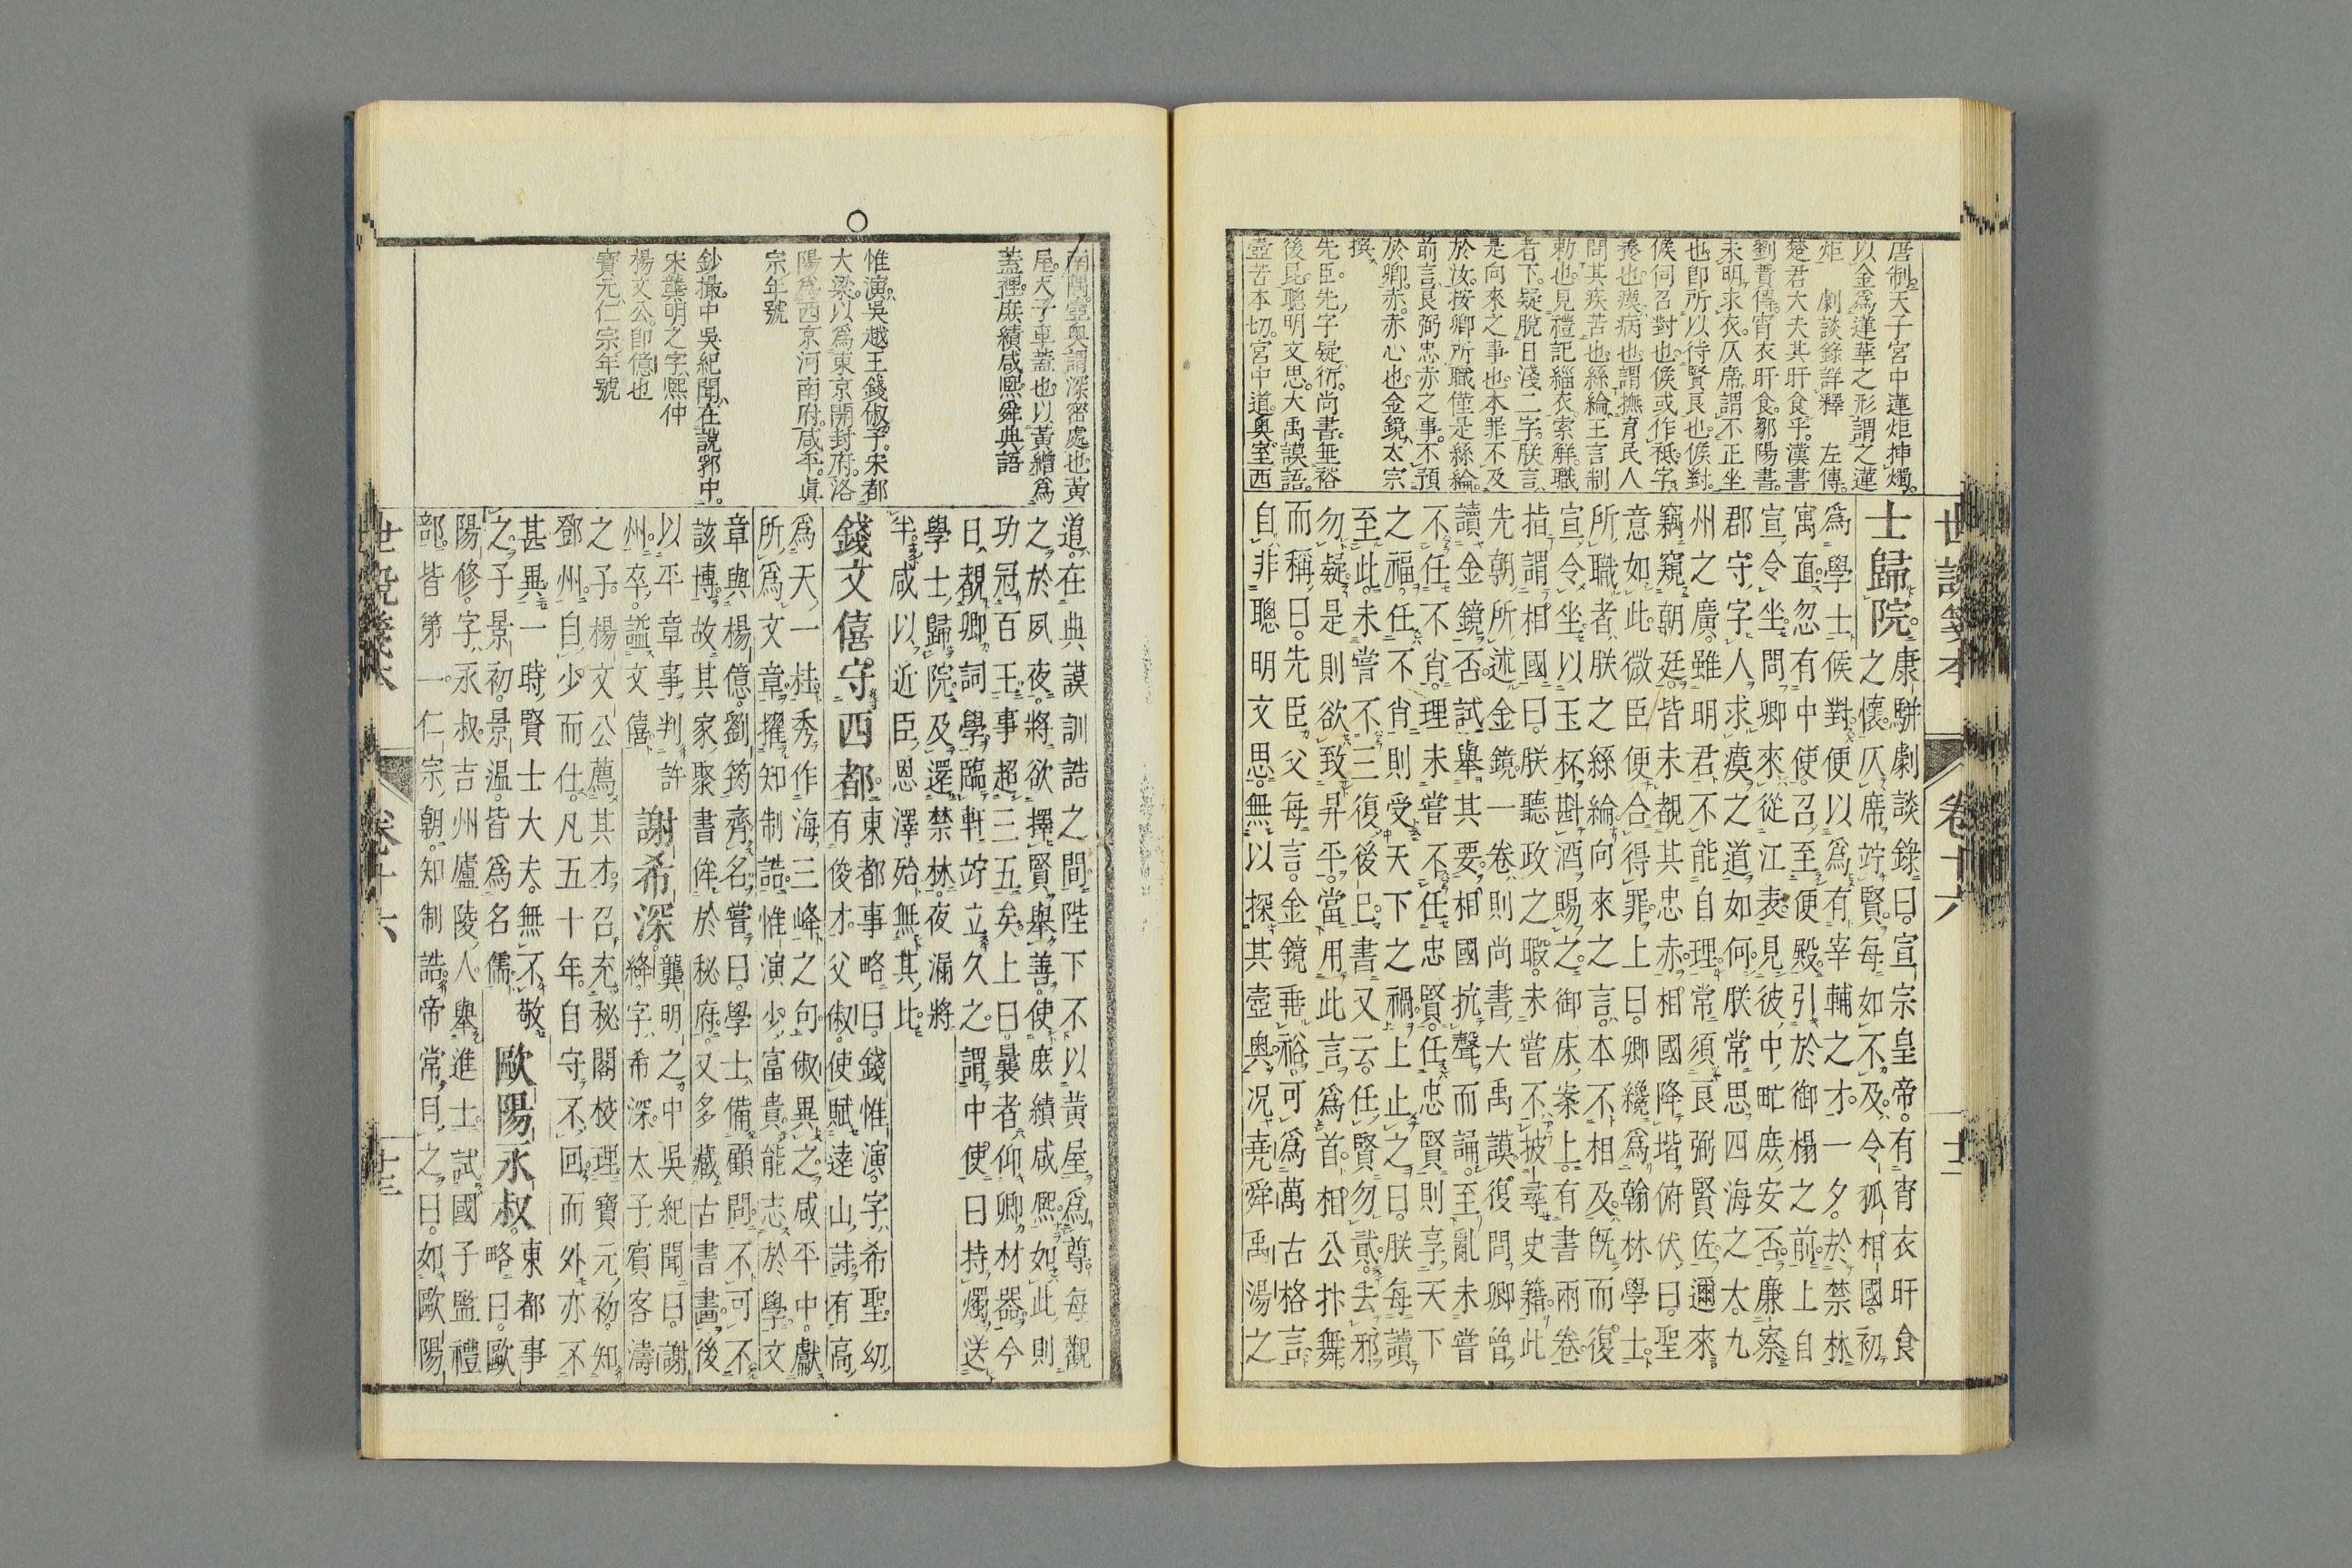 世說箋本
卷十六
十二
唐制天子宮中蓮炬挿燭
以金爲蓮華之形謂之蓮
炬　劇談錄詳釋　左傳
楚君大夫其旰食乎漢書
劉蕡傳宵衣旰食鄒陽書
未明求衣仄席謂不正坐
也卽所以待賢良也俟對
俟伺召對也俟或作祗字
養也瘼病也謂撫育民人
問其疾苦也絲綸王言制
勅也見禮記緇衣索解職
者下疑脫日淺二字朕言
是向來之事也本罪不及
於汝按卿所職僅是絲綸
前言良弼忠赤之事不預
於卿赤赤心也金鏡太宗
撰
先臣先字疑衍尚書垂裕
後昆聰明文思大禹謨語
壼苦本切宮中道奧室西
士歸院康駢劇談錄曰宣宗皇帝有宵衣旰食
之懷仄席竚賢每如不及令狐相國初
爲學士候對便以爲有宰輔之才一夕於禁林
寓直忽有中使召至便殿引於御榻之前上自
宣令坐問卿來從江表見彼中甿庶安否廉察
郡守字人求瘼之道如何朕常思四海之大九
州之廣雖明君不能自理常須良弼賢佐邇來
竊窺朝廷皆未覩其忠赤相國降堦俯伏曰聖
意如此微臣便合得罪上曰卿纔爲翰林學士
所職者朕之絲綸向來之言本不相及旣而復
宣令坐以玉杯斟酒賜之御床案上有書兩卷
指謂相國曰朕聽政之暇未嘗不披尋史籍此
先朝所述金鏡一卷則尚書大禹謨復問卿曾
讀金鏡否試舉其要相國抗聲而誦至亂未嘗
不任不肖理未嘗不任忠賢任忠賢則享天下
之福任不肖則受天下之禍上止之曰朕每讀
至此未嘗不三復後已書又云任賢勿貳去邪
勿疑是則欲致昇平當用此言爲首相公抃舞
而稱曰先臣父每言金鏡垂裕可爲萬古格言
自非聰明文思無以探其壼奧况堯舜禹湯之
南隅壼奧謂深密處也黃
屋天子車蓋也以黃繒爲
蓋裡庶績咸熙舜典語
惟演吳越王錢俶子宋都
大梁以爲東京開封府洛
陽爲西京河南府咸平眞
宗年號
鈔撮中吳紀聞在說郛中
宋龔明之字熙仲
楊文公卽億也
寶元仁宗年號
道在典謨訓誥之間陛下不以黃屋爲尊每觀
之於夙夜將欲擇賢舉善使庶績咸熙如此則
功冠百王事超三五矣上曰曩者仰卿材器今
日覩卿詞學臨軒竚立久之謂中使曰持燭送
學士歸院及還禁林夜漏將
半咸以近臣恩澤殆無其比
錢文僖守西都東都事略曰錢惟演字希聖幼
有俊才父俶使賦逹山詩有高
爲天一柱秀作海三峰之句俶異之咸平中獻
所爲文章擢知制誥惟演少富貴能志於學文
章與楊億劉筠齊名嘗曰學士備顧問不可不
該博故其家聚書侔於秘府又多藏古書畫後
以平章事判許謝希深龔明之中吳紀聞曰謝
州卒謚文僖絳字希深太子賓客濤
之子楊文公薦其才召充秘閣校理寶元初知
鄧州自少而仕凡五十年自守不回而外亦不
甚異一時賢士大夫無不敬歐陽永叔東都事
之子景初景温皆爲名儒略曰歐
陽修字永叔吉州廬陵人舉進士試國子監禮
部皆第一仁宗朝知制誥帝常目之曰如歐陽
世說箋本
卷十六
十三